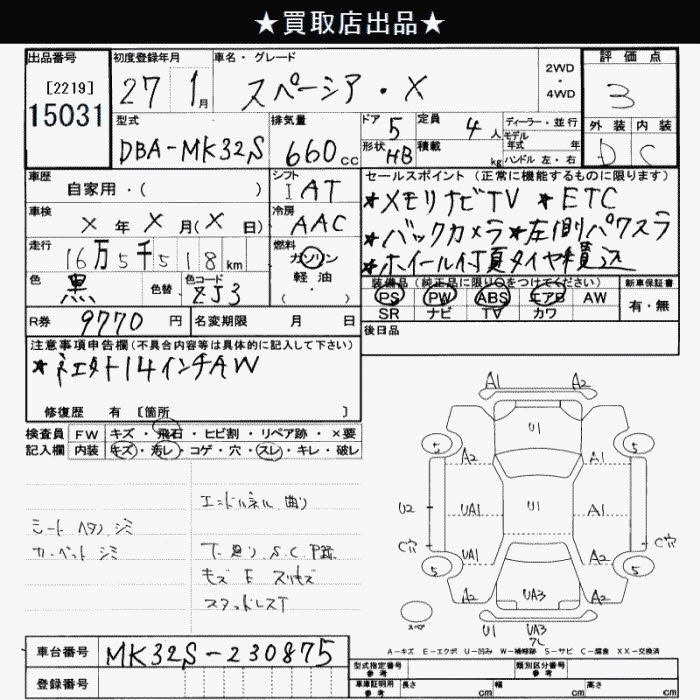 ★買取店出品★
出品番号
[2219]
15031
初度登録年月
27 1月
車名・グレード
スペーシア・X
2WD
・
4WD
評価点
3
外装 内装
D C
型式
DBA-MK32S
排気量
660cc
ドア 5
定員 4人
形状 HB
積載 kg
ディーラー・並行
モデル年式 年式
ハンドル 左・右
車歴
自家用・( )
シフト
I AT
車検
X 年 X 月(X 日)
冷房
AAC
走行
16万5千518km
燃料
ガソリン
軽油
・( )
色
黒
色替
色コード
ZJ3
R券 9770 円
名変期限 月 日
セールスポイント (正常に機能するものに限ります)
★メモリナビTV ★ETC
★バックカメラ★左側パワスラ
★ホイール付夏タイヤ積込
装備品 (純正品に限り○をつけてください)
PS PW ABS エアB AW
SR ナビ TV カワ
新車保証書
有・無
後日品
注意事項申告欄(不具合内容等は具体的に記入して下さい)
14インチAW
修復歴 有 [箇所 ]
検査員 FW キズ・飛石・ヒビ割・リペア跡・×要
記入欄 内装 キズ・汚レ・コゲ・穴・スレ・キレ・破レ
シート ヘタリ シミ
カーペット シミ
曲り
下廻り S.C
キズ E スリキズ
スタッドレスT
A1 A2
U1
5 5
A2 A1
U2 UA1 U1 A1
C穴 C穴
UA1 A2
5 5
A2 UA3 A2
スペア
U1 UA3
A-キズ E-エクボ U-凹み W-補修跡 S-サビ C-腐食 XX-交換済
車台番号 MK32S-230875
登録番号
型式指定番号
参考
類別区分番号
参考
車庫証明用
参考
長さ cm 幅 cm 高さ cm